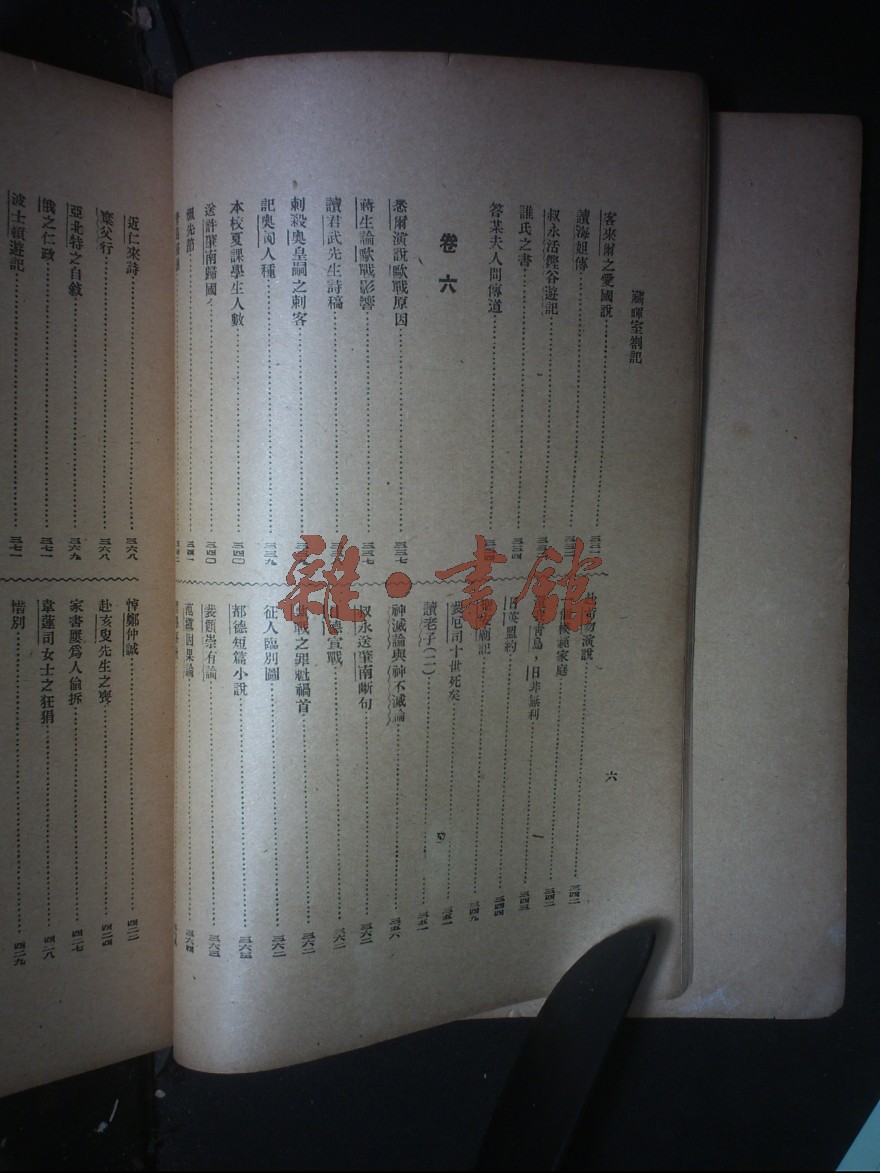 藏暉室劄記
客來爾之愛國說
讀海妲傳
叔永活鏗谷遊記
誰氏之書
答某夫人問傳道
卷六
悉爾演說歐戰原因……三三七
蔣生論歐戰影響……三三七
讀君武先生詩稿
刺殺奧皇嗣之刺客
記奧匈人種……三三九
本校夏課學生人數……三四〇
送許肇南歸國……三四〇
祖先節……三四一
演說
模範家庭……三四二
青島,日非無利……三四三
英盟約……三四四
裴厄司十世死矣……三五一
讀老子(二)……三五一
神滅論與神不滅論……三五六
叔永送肇南斷句……三六二
德宣戰
戰之罪魁禍首……三六二
征人臨別圖……三六二
都德短篇小說……三六三
裴頠崇有論……三六三
范縝因果論……三六四
六
近仁來詩……三六八
棄父行……三六八
亞北特之自敘……三六九
俄之仁政……三七一
波士頓遊記……三七一
悼鄭仲誠
赴亥叟先生之喪
家書屢為人偷拆……四二七
韋蓮司女士之狂狷……四二八
惜別……四二九
雜·書館